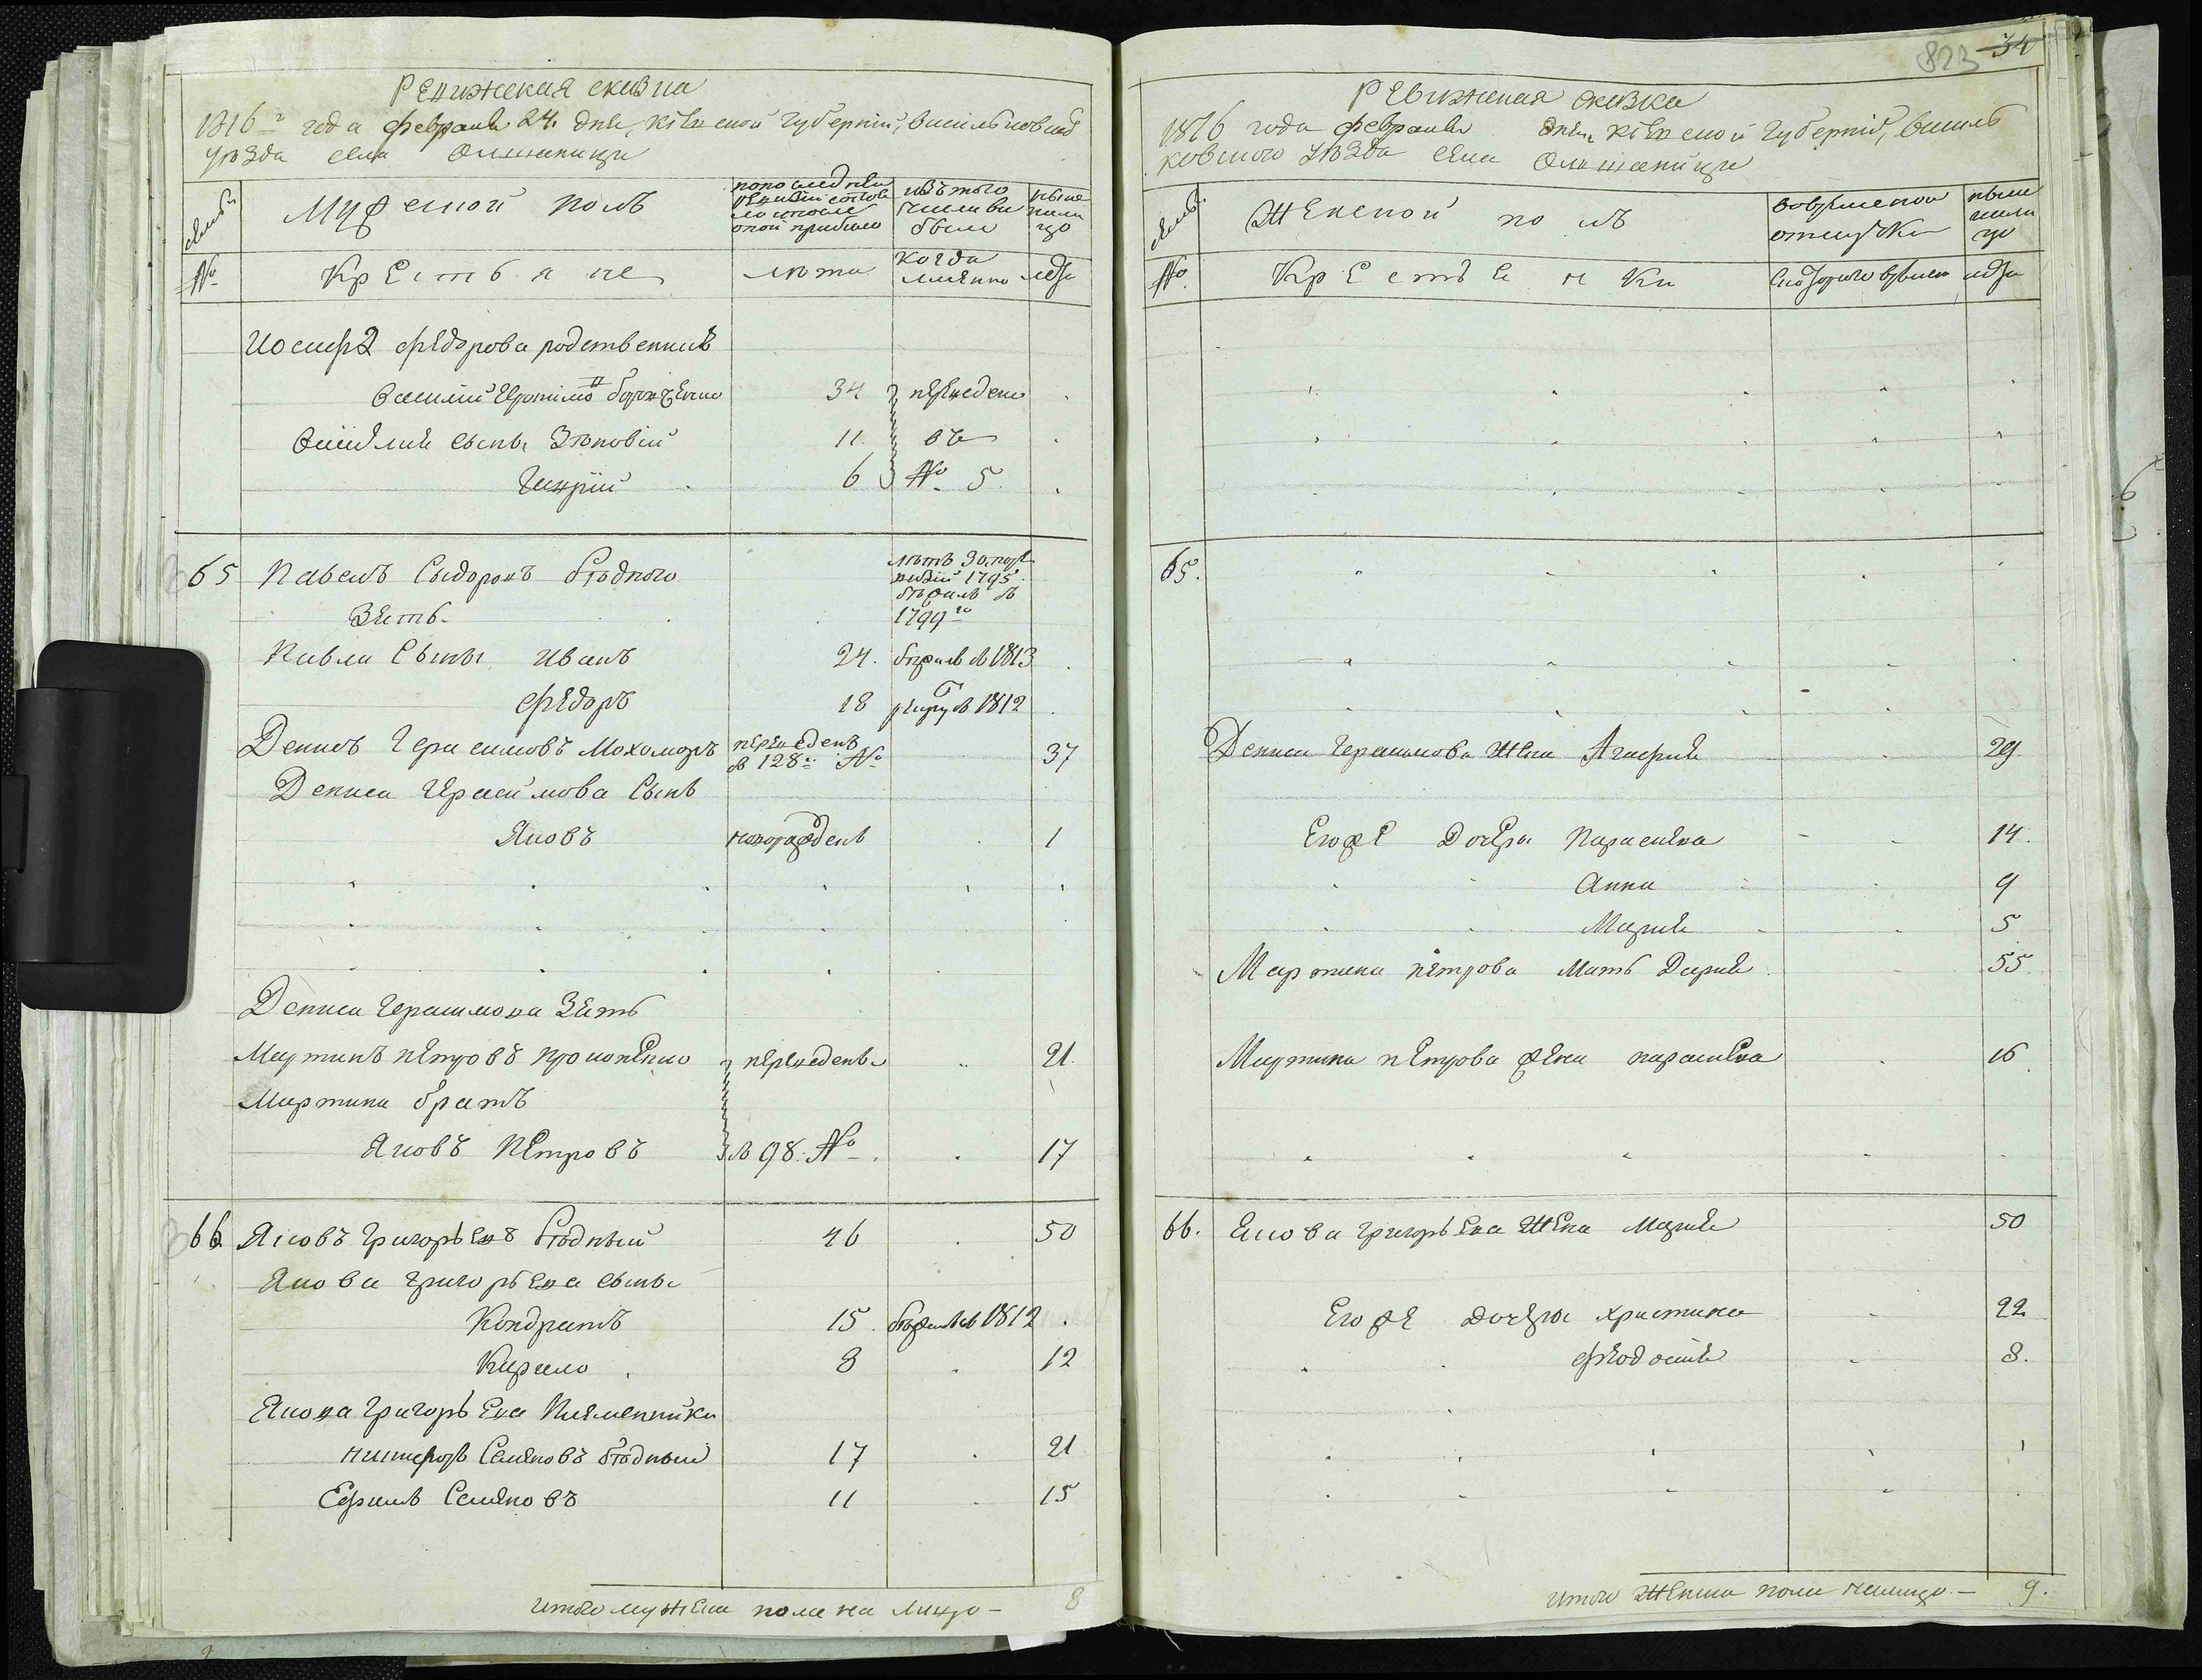 Ревижская сказка
1816 г. года февраля 24. дня, кіевской губерніи, василковскаго
уезда села Олшаницы
семьи
Мужеской полъ
по последней ревизіи состояло и после оной прибыло
изъ того числа выбыло
ныне налицо
№
Крестьяне
лета
когда именно
лета
Иосифа федорова родственникъ
Василий Ярошимовъ
34
переведены
Василия сыны Зѣновій
11
въ
Гигрій
6
№ 5.
65
Павелъ Сыдоровъ бѣдного
летъ 30. по ревизіи 1795. бежалъ въ 1799го
Зять
Павла Сыны Иванъ
24.
бежалъ въ 1813
федоръ
18
рекрутъ в 1812
Денисъ Герасимовъ Мохоморъ
переведенъ в 128й №
37
Дениса Герасимова Сынъ
Яковъ
новорожденъ
1
Дениса Герасимова Зять
Мартинъ петровъ прокопенко
переведены
21
Мартина братъ
Яковъ Петровъ
в 98. №
17
66
Яковъ григорьевъ бѣдный
46
50
Якова григорьева сыны
Кондратъ
15.
бежалъ в 1812
Кирило
8
12
Якова григорьева племенники
никифоръ Семеновъ бѣдный
17
21
Ефимъ Семеновъ
11
15
итого мужеска пола на лицо -
8
823 34
Ревижская сказка
1816 года февраля дня, кіевской губерніи, василь
ковского уезда села Олшаницы
семьи
Женской полъ
во временной отлучке
ныне налицо
№
Крестьянки
с которого времени
лета
65.
Дениса Герасимова жена Агафия
29
Его же Дочери Параскева
14.
Анна
9
Мария
5
Мартина петрова Мать Дария
55
Мартина петрова жена параскева
16
66.
Якова григорьева Жена Мария
50
Его же дочери христина
22
феодосия
8.
итого женска пола налицо -
9.